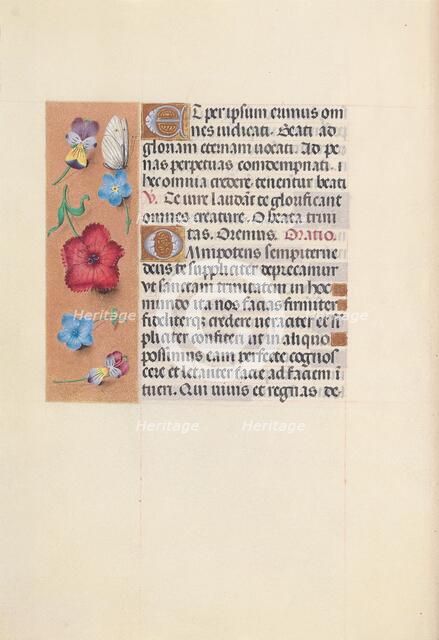 Et per ipsum erimus om
nes iudicati. Beati ad
gloriam eternam uocati. Ad pe
nas perpetuas comdempnati. i
hec omnia credere tenentur beati
V. Te iure laudāt te glorificant
omnes creature. O beata trini
tas. Oremus. Oratio.
Omnipotens sempiterne
deus te suppliciter deprecamur
vt sanctam trinitatem in hoc
mundo ita nos facias firmiter
fideliterqȝ credere ueraciter et si
pliciter confiteri ut in aliquo
possimus eam perfecte cognos
cere et letanter facie ad faciem i
tueri. Qui uiuis et regnas de-
Heritage Heritage
Heritage Heritage